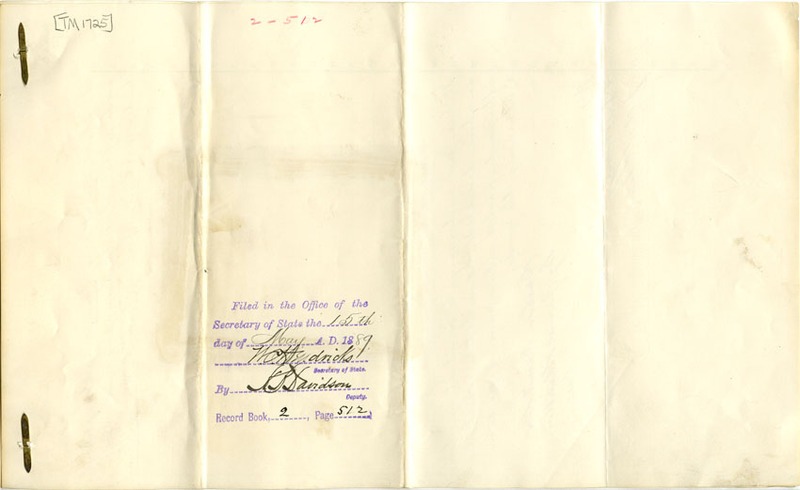 [TM 1725]
2-512
Filed in the Office of the
Secretary of State the 15th
day of May A. D. 1889
W C Hendricks
Secretary of State.
By Davidson
Deputy.
Record Book, 2, Page 512